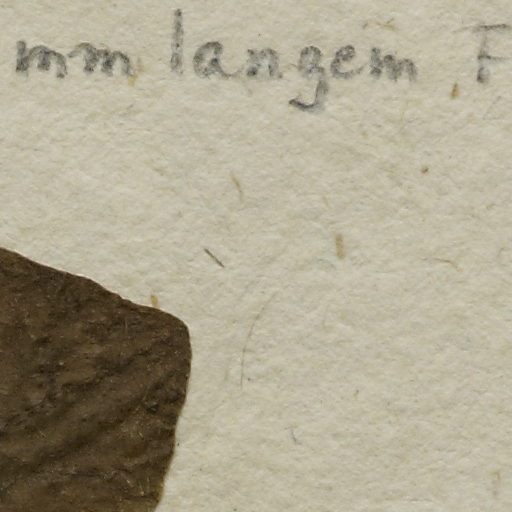 mm langem F